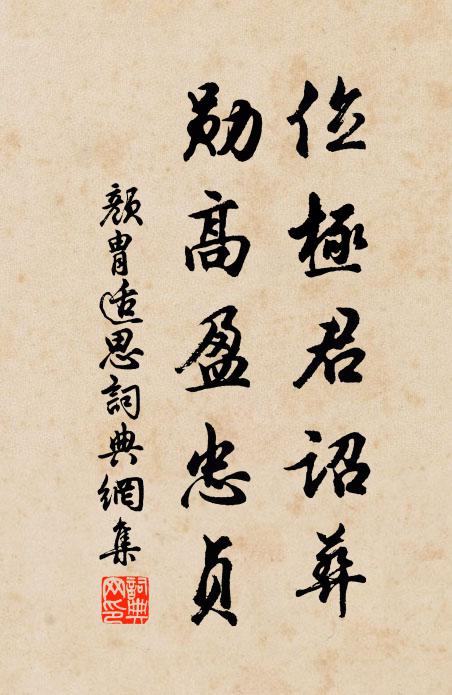 位極君詔葬
勛高盈忠貞
顏胄适思詞典網集
詞典網印